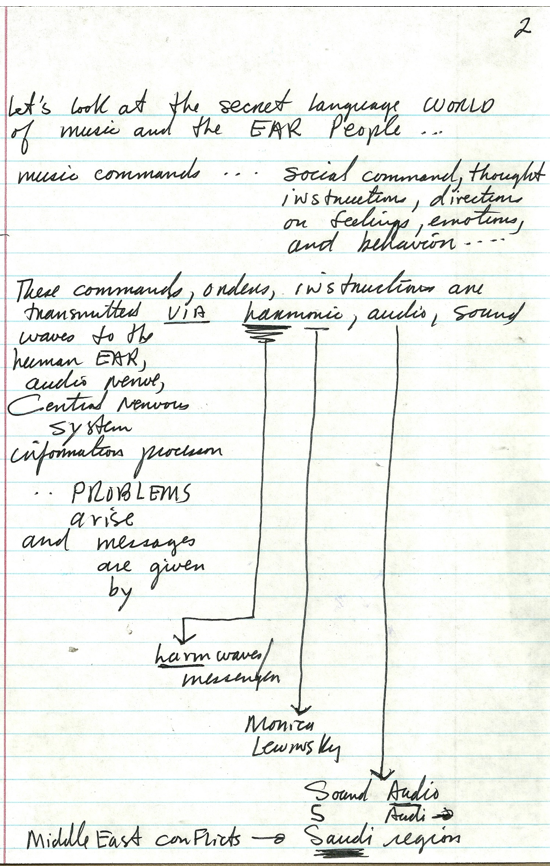 2
Let's look at the secret language WORLD
of music and the EAR People ...
music commands ... social command, thought
instructions, directions
on feelings, emotions,
and behavior ....
These commands, orders, instructions are
transmitted VIA harmonic, audio, sound
waves to the
human EAR,
audio nerve,
Central Nervous
system
information processor
.. PROBLEMS
arise
and messages
are given
by
harm waves/
messenger
Monica
Lewinsky
Sound Audio
S Audi →
Middle East conflicts → Saudi region